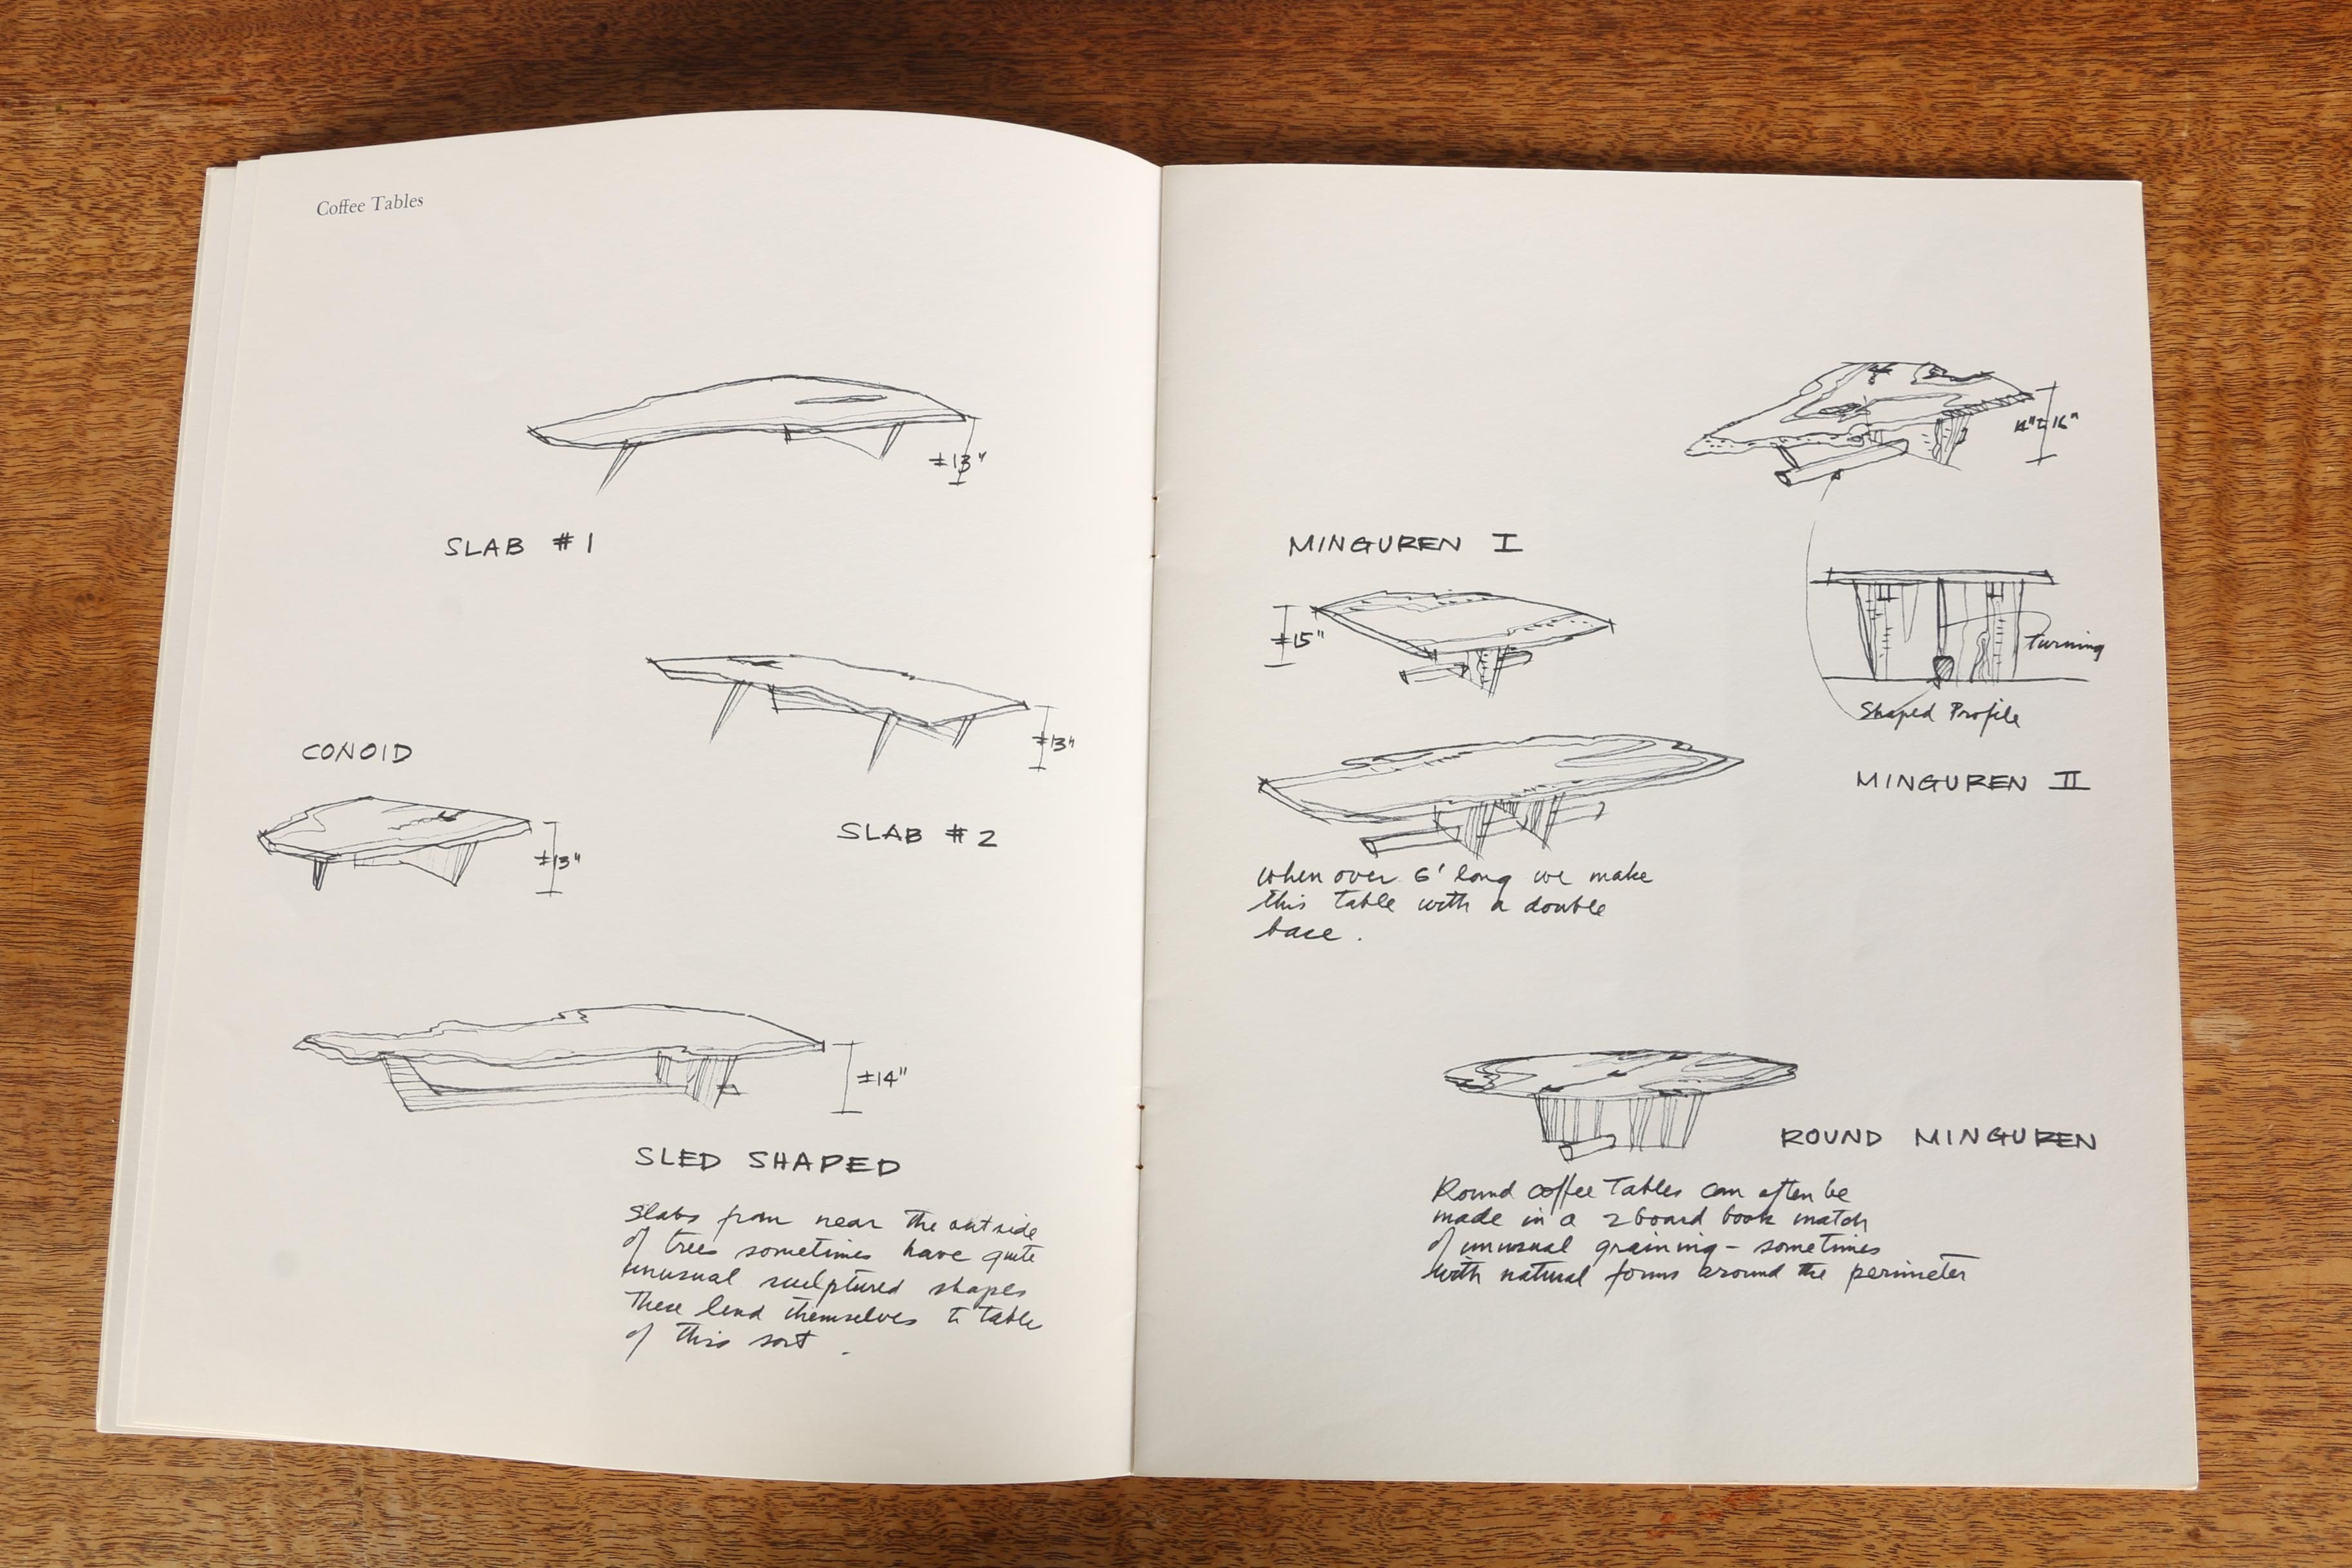 Coffee Tables
±13"
SLAB #1
±13"
CONOID
±13"
SLAB #2
±14"
SLED SHAPED
Slabs from near the outside
of trees sometimes have quite
unusual sculptured shapes
These lend themselves to table
of this sort.
16"
MINGUREN I
±15"
turning
Shaped Profile
MINGUREN II
when over 6' long we make
this table with a double
base.
ROUND MINGUREN
Round coffee tables can often be
made in a 2 board book match
of unusual graining - sometimes
with natural forms around the perimeter